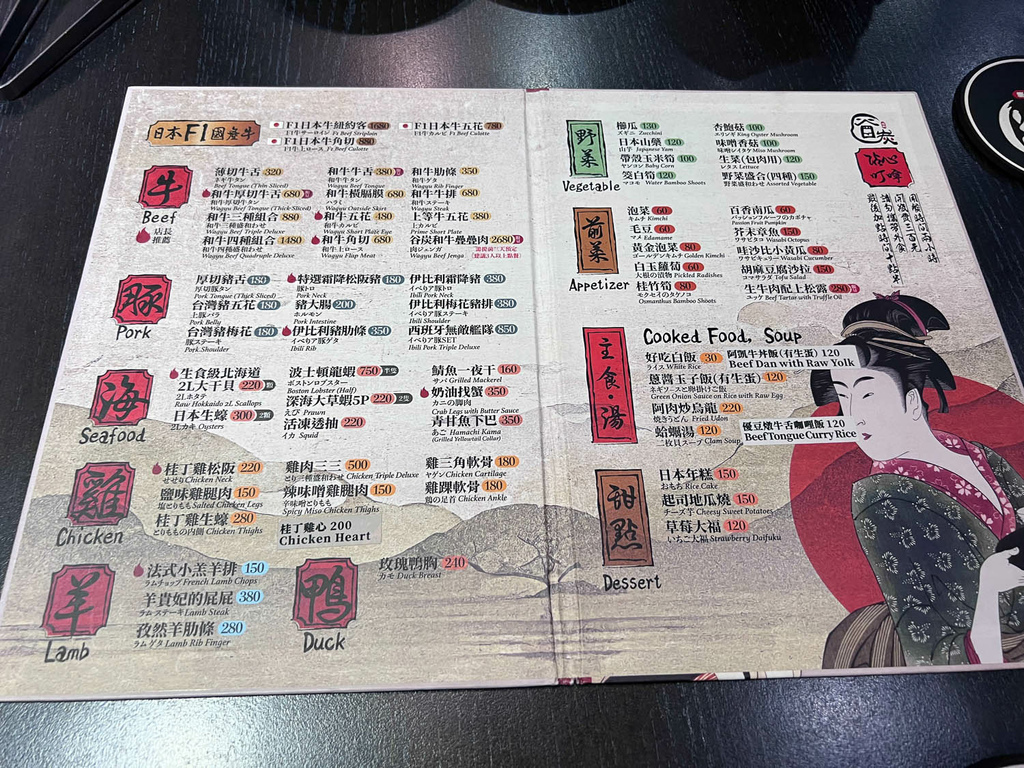 日本F1國產牛
F1日本牛紐約客 1680
F1牛サーロイン F1 Beef Striploin
F1日本牛五花 780
F1牛カルビ F1 Beef Culotte
F1日本牛角切 880
F1牛上ロース F1 Beef Culotte
牛
Beef
店長
推薦
薄切牛舌 320
ネギ牛タン
Beef Tongue (Thin Sliced)
和牛厚切牛舌 680
和牛厚切牛タン
Wagyu Beef Tongue (Thick Sliced)
和牛三種組合 880
和牛三種盛わせ
Wagyu Beef Triple Deluxe
和牛四種組合 1480
和牛四種盛わせ
Wagyu Beef Quadruple Deluxe
和牛牛舌 380
和牛牛タン
Wagyu Beef Tongue
和牛橫膈膜 680
ハラミ
Wagyu Outside Skirt
和牛五花 480
和牛カルビ
Wagyu Short Plate Eye
和牛角切 680
和牛上ロース
Wagyu Flap Meat
和牛肋條 350
和牛ゲタ
Wagyu Rib Finger
和牛牛排 680
和牛ステーキ
Wagyu Steak
上等牛五花 380
上カルビ
Prime Short Plate
谷炭和牛疊疊肉 2680
肉ジェンガ
Wagyu Beef Jenga
豚
Pork
厚切豬舌 180
厚切豚タン
Pork Tongue (Thick Sliced)
台灣豬五花 180
上豚バラ
Pork Belly
台灣豬梅花 180
豚ステーキ
Pork Shoulder
特選霜降松阪豬 180
豚トロ
Pork Neck
豬大腸 200
ホルモン
Pork Intestine
伊比利豬肋條 350
イベリア豚ゲタ
Ibili Rib
伊比利霜降豬 380
イベリア豚トロ
Ibili Pork Neck
伊比利梅花豬排 380
イベリア豚ステーキ
Ibili Shoulder
西班牙無敵艦隊 850
イベリア豚SET
Ibili Pork Triple Deluxe
海
Seafood
生食級北海道
2L大干貝 220
2Lホタテ
Raw Hokkaido 2L Scallops
日本生蠔 300
2Lカキ Oysters
波士頓龍蝦 750
ボストンロブスター
Boston Lobster (Half)
深海大草蝦5P 220
えび Prawn
活凍透抽 220
イカ Squid
鯖魚一夜干 160
サバ Grilled Mackerel
奶油找蟹 350
カニの脚肉
Crab Legs with Butter Sauce
青甘魚下巴 350
あご Hamachi Kama
(Grilled Yellowtail Collar)
雞
Chicken
桂丁雞松阪 220
せせり Chicken Neck
鹽味雞腿肉 150
塩とりもも Salted Chicken Legs
桂丁雞生蠔 280
とりももの内側 Chicken Thighs
雞肉三三 500
とり三種盛わせ Chicken Triple Deluxe
辣味噌雞腿肉 150
辛味噌とりもも
Spicy Miso Chicken Thighs
桂丁雞心 200
Chicken Heart
雞三角軟骨 180
ヤゲン Chicken Cartilage
雞踝軟骨 180
鶏の足首 Chicken Ankle
羊
Lamb
法式小羔羊排 150
ラムチョップ French Lamb Chops
羊貴妃的屁屁 380
ラムステーキ Lamb Steak
孜然羊肋條 280
ラムゲタ Lamb Rib Finger
鴨
Duck
玫瑰鴨胸 240
カモ Duck Breast
野菜
Vegetable
櫛瓜 130
ズギニ Zucchini
日本山藥 120
山芋 Japanese Yam
帶殼玉米筍 100
ヤンコン Baby Corn
筊白筍 120
マコモ Water Bamboo Shoots
杏鮑菇 100
エリンギ King Oyster Mushroom
味噌香菇 100
味噌シイタケ Miso Mushroom
生菜(包肉用) 120
レタス Lettuce
野菜盛合(四種) 150
野菜盛わせ Assorted Vegetable
前菜
Appetizer
泡菜 60
キムチ Kimchi
毛豆 60
マメ Edamame
黃金泡菜 80
ゴールデンキムチ Golden Kimchi
白玉蘿蔔 60
大根の漬物 Pickled Radishes
桂竹筍 80
モクセイのタケノコ
Osmanthus Bamboo Shoots
百香南瓜 60
パッションフルーツのカボチャ
Passion Fruit Pumpkin
芥末章魚 150
ワサビタコ Wasabi Octopus
哇沙比小黃瓜 80
ワサビキュリー Wasabi Cucumber
胡麻豆腐沙拉 150
ゴマサラダ Tofu Salad
生牛肉配上松露 280
ユッケ Beef Tartar with Truffle Oil
主食·湯
Cooked Food, Soup
好吃白飯 30
ライス White Rice
蔥醬玉子飯(有生蛋) 120
ネギソースと卵掛けご飯
Green Onion Sauce on Rice with Raw Egg
阿肉炒烏龍 220
焼きうどん Fried Udon
蛤蠣湯 120
二枚貝スープ Clam Soup
阿凱牛丼飯(有生蛋) 120
Beef Dan with Raw Yolk
優豆燉牛舌咖哩飯 120
Beef Tongue Curry Rice
甜點
Dessert
日本年糕 150
おもち Rice Cake
起司地瓜燒 150
チーズ芋 Cheesy Sweet Potatoes
草莓大福 120
いちご大福 Strawberry Daifuku
谷炭
貼心
叮嚀
用餐時間兩小時